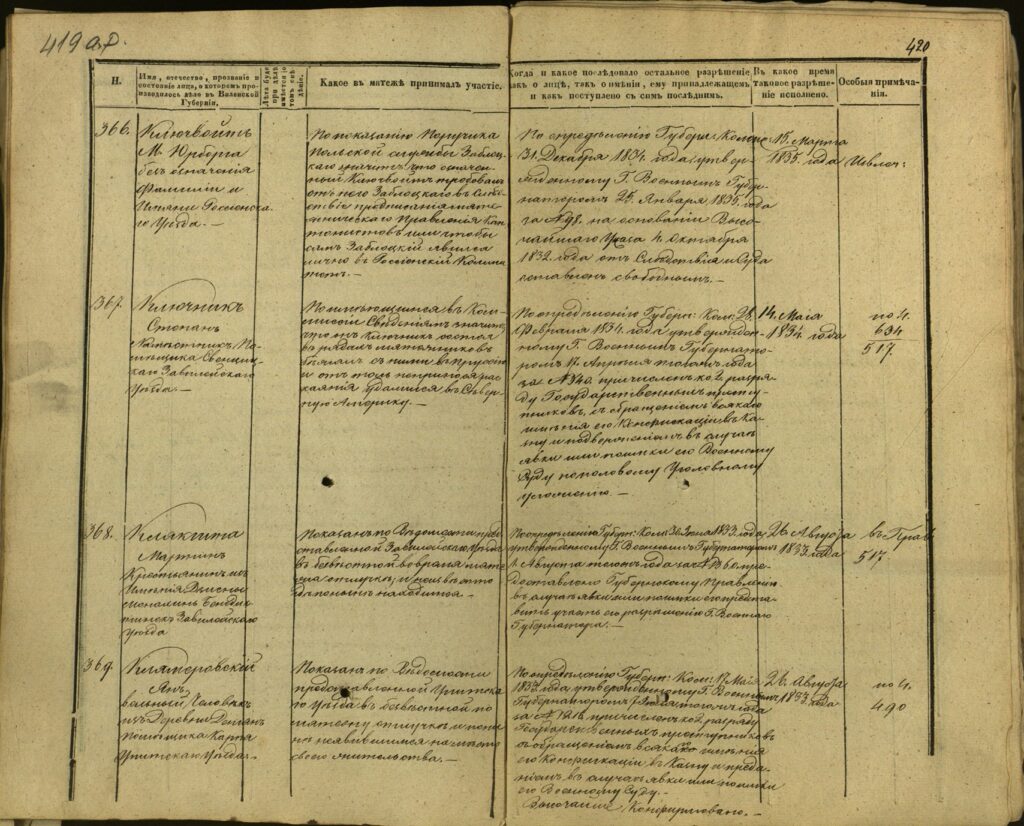 419 об.
420
Н.
Имя, отечество, прозвание и
состояние лица, о которомъ про-
изводилось дѣло въ Виленской
Губерніи.
Какое въ матежѣ принималъ участіе.
Когда и какое послѣдовало остальное разрѣшеніе
какъ о лицѣ, такъ о имѣніи, ему принадлежащемъ
и какъ поступлено съ симъ послѣднимъ.
Въ какое время
таковое разрѣше-
ніе исполнено.
Особыя примѣча-
нія.
366.
Ключвойтъ
М. Юрборга
безъ означенія
Фамиліи и
Имяни Россіенска-
го Уѣзда. —
По показанію Поручика
Польской службы Заблоц-
каго значитъ, что означен-
ный Ключвойтъ требовалъ
отъ него Заблоцкаго въ слѣд-
ствіе предписанія мяте-
жническаго Правленія Кан-
тонистовъ или чтобы
самъ Заблоцкій явился
лично въ Россіенскій Коми-
тетъ. —
По опредѣленію Губерн: Коммис:
31. Декабря 1834 года утвер-
жденному Г. Военнымъ Губер-
наторомъ 25. Января 1835. года
за № 98. на основаніи Высо-
чайшаго Указа 4. Октября
1832. года отъ Слѣдствія и Суда
оставленъ свободнымъ. —
15. Марта
1835. года
367.
Ключникъ
Степанъ
Помѣщика
Завилейскаго
Уѣзда. —
По имѣющимся въ Ком-
мисіи Свѣденіямъ значит:
что онъ Ключникъ состоя
въ рядахъ мятежниковъ
бѣжалъ съ ними въ Пруссію
и отъ толь непринося рас-
каянія удалился въ Сѣвер-
ную Америку. —
По опредѣленію Губерн: Ком: 28.
Февраля 1834. года утвержден-
ному Г. Военнымъ Губернато-
ромъ 17. Апрѣля того же года
за № 340. причисленъ ко 2. разря-
ду Государственныхъ престу-
пниковъ, съ обращеніемъ всякаго
имѣнія его Конфискаціи въ Ка-
зну и подверженіемъ въ случаѣ
явки или поимки его Военному
Суду по полевому Уголовному
уложенію. —
14. Маія
1834 года
по 4.
634
517.
368.
Мартинъ
Крестьянинъ изъ
Имѣнія
Завилейскаго
уѣзда
Показанъ по Вѣдомости пред-
ставленной Завилейскаго Уѣзда
въ безвѣстной во время мяте-
жа отлучкѣ и
находится. —
По опредѣленію Губерн: Ком: 1833. года
утвержденному Г. Военнымъ Губернаторомъ
1 Августа того же года за № пре-
доставлено Губернскому Правленію
въ случаѣ явки или поимки его предста-
вить участь его разрѣшенію Г. Военнаго
Губернатора. —
26. Августа
1833. года
въ Прав
517
369.
Клямеровскій
Янъ
вольный Человѣкъ
изъ Деревни
помѣщика Карпя
Упитскаго Уѣзда. —
Показанъ по Вѣдомости
представленной Упитска-
го Уѣзда въ безвѣстной по
мятежу отлучкѣ и
неявившимся на мѣсто
своего жительства. —
По опредѣленію Губерн: Ком: 17. Мая
1833. года утвержденному Г. Военнымъ
Губернаторомъ того же года
за № причисленъ ко 2. разряду
Государственныхъ преступниковъ
съ обращеніемъ всякаго имѣнія
его Конфискаціи въ Казну и преда-
ніемъ въ случаѣ явки или поимки
его Военному Суду. —
Высочайше Конфирмовано. —
26. Августа
1833. года
по 4.
490